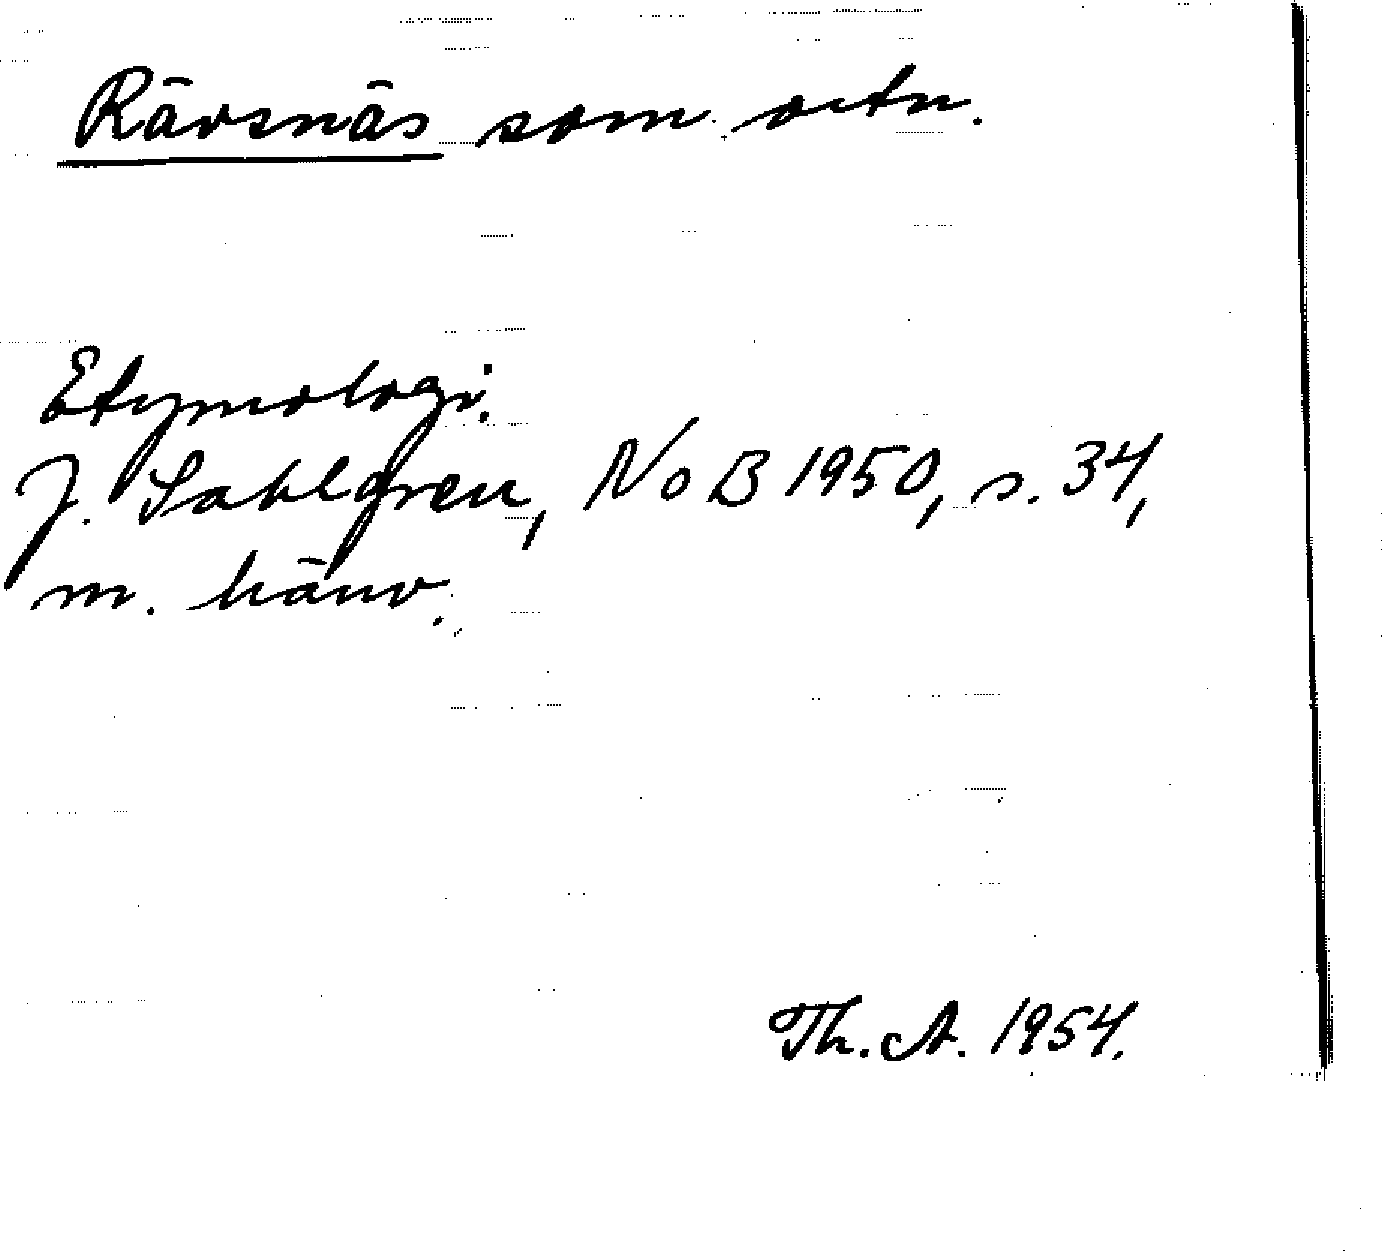 Rävsnäs som ortn.
Etymologi.
J. Sahlgren, NoB 1950, s. 34,
m. hänv.
Th. A. 1954.